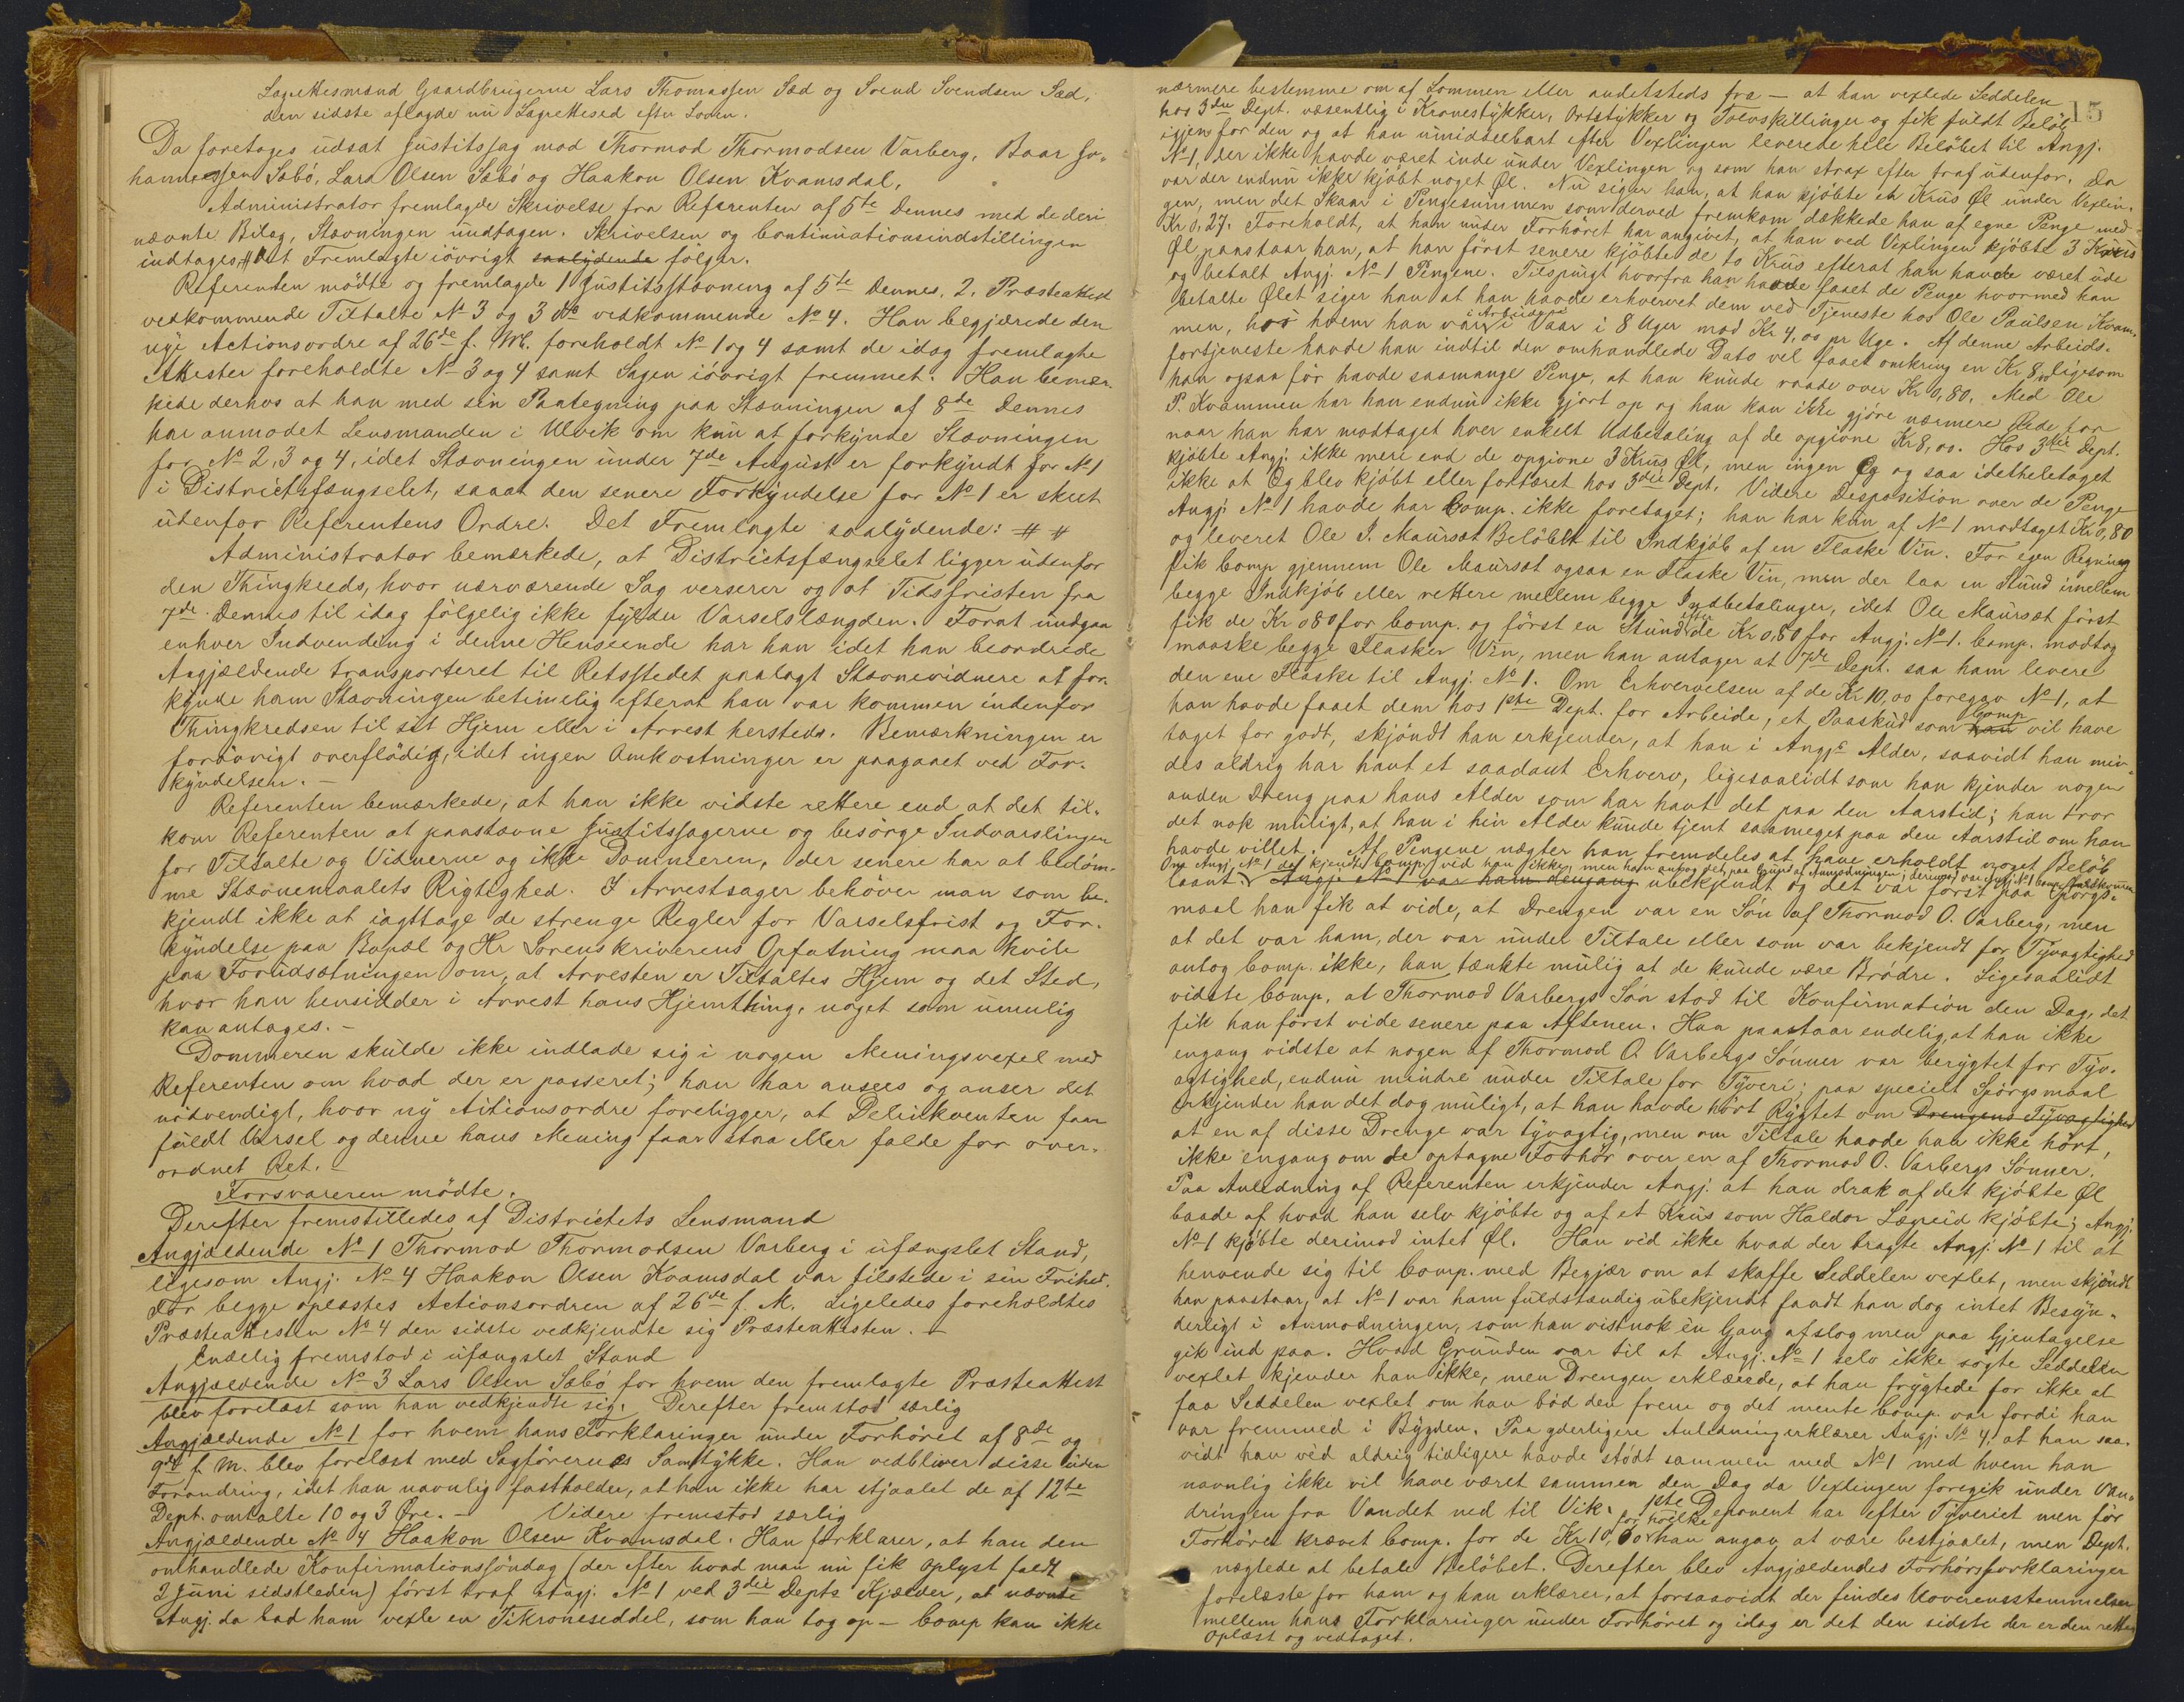 Lagrettesmænd Gaardbrugerne Lars Thomassen Sæd og Svend Svendsen Sæd,
den sidste aflagde nu Lagrettesed efter Loven.
Da foretoges udsat Justitssag mod Thormod Thormodsen Varberg, Baar Jo-
hannessen Sæbö, Lars Olsen Sæbö og Haakon Olsen Kvamsdal,
Administrator fremlagde Skrivelse fra Referenten af 5te dennes med de deri
nævnte Bilag, Stævningen undtagen. Skrivelsen og Continuationsindstillingen
indtages, det Fremlagte iövrigt saalydende fölger.
Referenten mödte og fremlagde 1 Justitsstævning af 5te dennes, 2. Præsteattest
vedkommende Tiltalte No 3 og 3 do vedkommende No 4. Han begjærede den
nye Actionsordre af 26de f. M. foreholdt No 1 og 4 samt de idag fremlagte
Attester foreholdte No 3 og 4 samt Sagen iövrigt fremmet. Han bemær-
kede derhos at han med sin Paategning paa Stævningen af 8de dennes
har anmodet Lensmanden i Ulvik om kun at forkynde Stævningen
for No 2, 3 og 4, idet Stævningen under 7de August er forkyndt for No 1
i Districtsfængselet, saaat den senere Forkyndelse for No 1 er skeet
udenfor Referentens Ordre. Det Fremlagte saalydende: # #
Administrator bemærkede, at Districtsfængselet ligger udenfor
den Thingkreds, hvor nærværende Sag verserer og at Tidsfristen fra
7de dennes til idag fölgelig ikke fylder Varselslængden. Forat undgaa
enhver Indvending i denne Henseende har han idet han beordrede
Angjældende transporteret til Retsstedet paalagt Stævnevidnere at for-
kynde ham Stævningen betimelig efterat han var kommen indenfor
Thingkredsen til sit Hjem eller i Arrest hersteds. Bemærkningen er
forövrigt overflödig, idet ingen Omkostninger er paagaaet ved For-
kyndelsen. –
Referenten bemærkede, at han ikke vidste rettere end at det til-
kom Referenten at paastævne Justitssagerne og besörge Indvarslingen
for Tiltalte og Vidnerne og ikke Dommeren, der senere har at bedöm-
me Stævnemaalets Rigtighed. I Arrestsager behöver man som be-
kjendt ikke at iagttage de strenge Regler for Varselsfrist og For-
kyndelse paa Bopæl og Hr Sorenskriverens Opfatning maa hvile
paa Forudsætningen om, at Arresten er Tiltaltes Hjem og det Sted,
hvor han hensidder i Arrest hans Hjemthing, noget som umulig
kan antages. –
Dommeren skulde ikke indlade sig i nogen Meningsvexel med
Referenten om hvad der er passeret; han har ansees og anser det
nödvendigt, hvor ny Actionsordre foreligger, at Delinkventen faar
fuldt Varsel og denne hans Mening faar staa eller falde for over-
ordnet Ret. –
Forsvareren mödte.
Derefter fremstilledes af Districtets Lensmand
Angjældende No 1 Thormod Thormodsen Varberg i ufængslet Stand,
ligesom Angj. No 4 Haakon Olsen Kvamsdal var tilstede i sin Frihed.
For begge oplæstes Actionsordren af 26de f. M. Ligeledes foreholdtes
Præsteattesten No 4 den sidste vedkjendte sig Præsteattesten. –
Endelig fremstod i ufængslet Stand
Angjældende No 3 Lars Olsen Sæbö for hvem den fremlagte Præsteattest
blev forelæst som han vedkjendte sig. Derefter fremstod særlig
Angjældende No 1 for hvem hans Forklaringer under Forhöret af 8de og
9de f. M. blev forelæst med Sagförernes Samtykke. Han vedbliver disse uden
Forandring, idet han navnlig fastholder, at han ikke har stjaalet de af 12te
Dept. omtalte 10 og 3 Öre. – Videre fremstod særlig
Angjældende No 4 Haakon Olsen Kvamsdal. Han forklarer, at han den
omhandlede Konfirmationssöndag (der efter hvad man nu fik oplyst faldt
2 Juni sidstleden) först traf Angj. No 1 ved 3die Depts Kjælder, at nævnte
Angj. da bad ham vexle en Tikroneseddel, som han tog op – Comp kan ikke
15
nærmere bestemme om af Lommen eller andetsteds fra – at han vexlede Seddelen
hos 3die Dept. væsentlig i Kronestykker, Ortstykker og Tolvskillinger og fik fuldt Belöb
igjen for den og at han umiddelbart efter Vexlingen leverede hele Belöbet til Angj.
No 1, der ikke havde været inde under Vexlingen og som han strax efter traf udenfor. Da
var der endnu ikke kjöbt noget Öl. Nu siger han, at han kjöbte et Krus Öl under Vexlin-
gen, men det Skaar i Pengesummen som derved fremkom dækkede han af egne Penge med
Kr 0,27. Foreholdt, at han under Forhöret har angivet, at han ved Vexlingen kjöbte 3 Krus
Öl paastaar han, at han först senere kjöbte de to Krus efterat han havde været ude
og betalt Angj. No 1 Pengene. Tilspurgt hvorfra han havde faaet de Penge hvormed han
betalte Ölet siger han at han havde erhvervet dem ved Tjeneste hos Ole Paulsen Kvam-
men, hos hvem han var i Arbeide i Vaar i 8 Uger mod Kr 4,00 pr Uge. Af denne Arbeids-
fortjeneste havde han indtil den omhandlede Dato vel faaet omkring en Kr 8,00 ligesom
han ogsaa för havde saamange Penge, at han kunde raade over Kr 0,80. Med Ole
P. Kvammen har han endnu ikke gjort op og han kan ikke gjöre nærmere Rede for
naar han har modtaget hver enkelt Udbetaling af de opgivne Kr 8,00. Hos 3die Dept.
kjöbte Angj. ikke mere end de opgivne 3 Krus Öl, men ingen Eg og saa idetheletaget
ikke at Eg blev kjöbt eller fortæret hos 3die Dept. Videre Desposition over de Penge
Angj. No 1 havde har Comp. ikke foretaget; han har kun af No 1 modtaget Kr 0,80
og leveret Ole J. Maursæt Belöbet til Indkjöb af en Flaske Vin. For egen Regning
fik Comp gjennem Ole Maursæt ogsaa en Flaske Vin, men der laa en Stund imellem
begge Indkjöb eller rettere mellem begge Indbetalinger, idet Ole Maursæt först
fik de Kr 0,80 for Comp. og först en Stund efter de Kr 0,80 for Angj. No 1. Comp. modtog
maaske begge Flasker Vin, men han antager at 7de Dept. saa ham levere
den ene Flaske til Angj. No 1. Om Erhvervelsen af de Kr 10,00 foregav No 1, at
han havde faaet dem hos 1ste Dept. for Arbeide, et Paaskud som han Comp vil have
taget for godt, skjöndt han erkjender, at han i Angjs Alder, saavidt han min-
des aldrig har havt et saadant Erhverv, ligesaalidt som han kjender nogen
anden Dreng paa hans Alder som har havt det paa den Aarstid; han tror
det nok muligt, at han i hin Alder kunde tjent saameget paa den Aarstid om han
havde villet. Af Pengene nægter han fremdeles at have erholdt noget Belöb
Om Angj. No 1 da kjendte Comp. ved han ikke, men han antog det paa Grund af Anmodningen; derimod var Angj. No 1 Comp fuldkommen
laant. Angj. No 1 var ham dengang ubekjendt og det var först paa Spörgs-
maal han fik at vide, at Drengen var en Sön af Thormod O. Varberg, men
at det var ham, der var under Tiltale eller som var bekjendt for Tyvagtighed
antog Comp. ikke, han tænkte mulig at de kunde være Brödre. Ligesaalidt
vidste Comp, at Thormod Varbergs Sön stod til Konfirmation den Dag, det
fik han först vide senere paa Aftenen. Han paastaar endelig, at han ikke
engang vidste at nogen af Thormod O. Varbergs Sönner var berygtet for Tyv-
agtighed, endnu mindre under Tiltale for Tyveri; paa specielt Spörgsmaal
erkjender han det dog muligt, at han havde hört Rygtet om Drengens Tyvagtighed
at en af disse Drenge var tyvagtig, men om Tiltale havde han ikke hört,
ikke engang om de optagne Forhör over en af Thormod O. Varbergs Sönner.
Paa Anledning af Referenten erkjender Angj. at han drak af det kjöbte Öl
baade af hvad han selv kjöbte og af et Krus som Haldor Lægreid kjöbte; Angj.
No 1 kjöbte derimod intet Öl. Han ved ikke hvad der bragte Angj. No 1 til at
henvende sig til Comp. med Begjær om at skaffe Seddelen vexlet, men skjöndt
han paastaar, at No 1 var ham fuldstændig ubekjendt fandt han dog intet Besyn-
derligt i Anmodningen, som han vistnok én Gang afslog men paa Gjentagelse
gik ind paa. Hvad Grunden var til at Angj. No 1 selv ikke sögte Seddelen
vexlet kjender han ikke, men Drengen erklærede, at han frygtede for ikke at
faa Seddelen vexlet om han böd den frem og det mente Comp. var fordi han
var fremmed i Bygden. Paa yderligere Anledning erklærer Angj. No 4, at han saa-
vidt han véd aldrig tidligere havde stödt sammen med No 1 med hvem han
navnlig ikke vil have været sammen den Dag da Vexlingen foregik under Van-
dringen fra Vandet ned til Vik. 1ste Deponent har efter Tyveriet men för
Forhöret krævet Comp. for de Kr 10,00 for hvilke han angav at være bestjaalet, men Dept.
nægtede at betale Belöbet. Derefter blev Angjældendes Forhörsforklaringer
forelæste for ham og han erklærer, at forsaavidt der findes Uoverensstemmelser
mellem hans Forklaringer under Forhöret og idag er det den sidste der er den rette.
Oplæst og vedtaget.